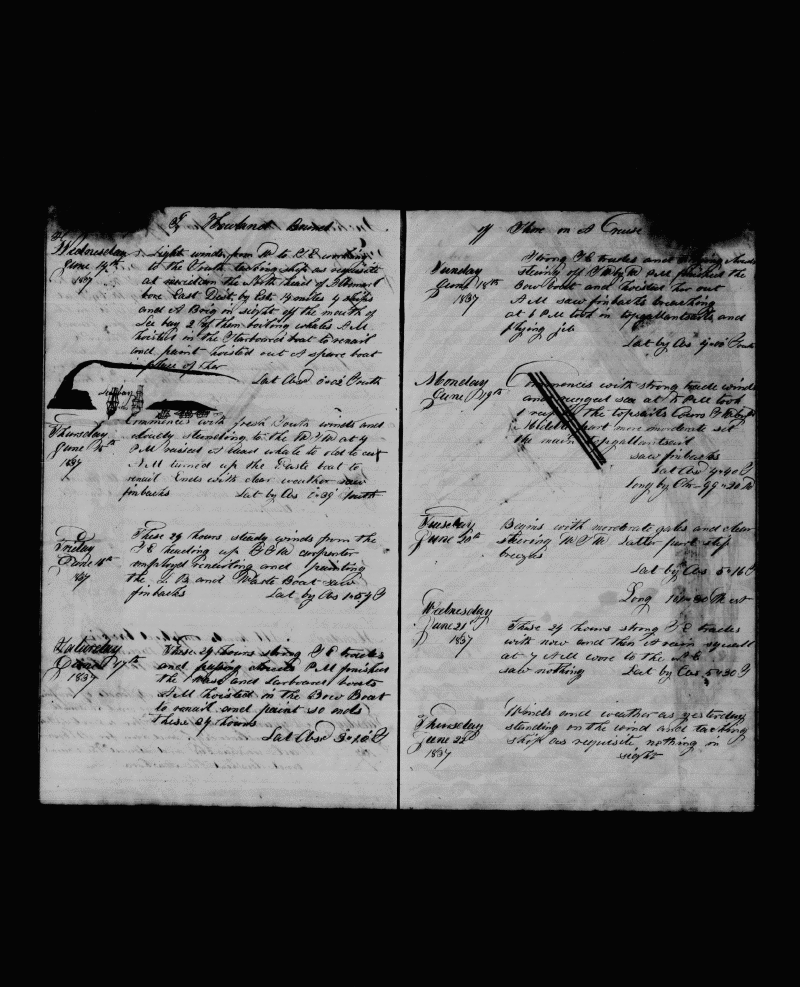 J Howland Bound
Wednesday
June 14th
1837
Light winds from W to S.E working
to the South tacking ship as requisite
at meridian the North head of Albemarl
bore East Dist by Est 14 miles 4 ships
and A Brig in sight off the mouth of
bay 2 of them boiling whales A.M
hoisted in the Starboard boat to renail
and paint hoisted out A spare boat
in place of her
Lat South
Thursday
June 15th
1837
Commences with fresh South winds and
cloudy standing to the at 4
P.M raised A dead whale to old to cut
A.M turned up the Waste boat to
renail Ends with clear weather saw
finbacks Lat by Obs 0"39 South
Friday
June 16th
1837
These 24 hours steady winds from the
S.E heading up carpenter
employed renailing and painting
the L. B. and Waste Boat saw
finbacks Lat by Obs 1"57 S
Saturday
June 17th
1837
These 24 hours strong S.E trades
and passing clouds P.M finished
the Waste and Starboard boats
A.M hoisted in the Bow Boat
to renail and paint so ends
these 24 hours
Lat Obsd S
off Shore on A Cruise
Sunday
June 18th
1837
Strong S.E trades and clouds
steering off P.M finished the
Bow boat and hoisted her out
A.M saw finbacks breaching
at 5 P.M took in topgallantsails and
flying jib
Lat by Obs South
Monday
June 19th
Commences with strong trade winds
and rugged sea at P.M took
1 reef the topsails
part more moderate set
the main topgallantsail
saw finbacks
Lat Obsd 4"40 S
Long by Chr 99"30 W
Tuesday
June 20th
Begins with moderate gales and clear
steering Latter part stif
breezes
Lat by Obs 5"16 S
Long West
Wednesday
June 21st
1837
These 24 hours strong S.E trades
with now and then A rain squall
at 7 A.M wore to the
saw nothing Lat by Obs 5"30 S
Thursday
June 22d
1837
Winds and weather as yesterday
standing on the wind and tacking
ship as requisite nothing in
sight